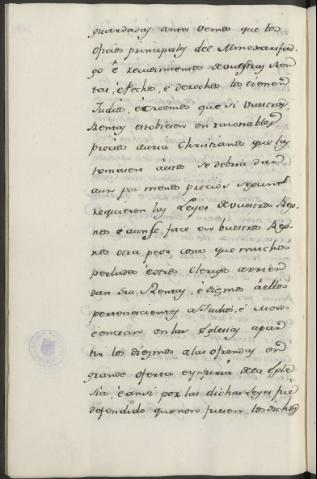 guardadas antes vemos que los
oficios principales del Almoxarifad
go é recaudimientos de vuestras Ren
tas, é fechos, é derechos los tienen
Judios, é creemos que si vuestras
Rentas estobiesen en razonables
precios auria Christianos que las
tomasen á estos se debria dar
aun por menos precios segun
requieren las Leyes de vuestros Reg
nos é aun se face en vuestros Reg
nos otra peor cosa que muchos
perlados é otros Clerigos arrien
dan sus Rentas, é diezmos á ellos
pertenecientes a Judios, é Moros
é entran en las Iglesias apar
tir los diezmos a las ofrendas en
grande ofensa é ynjuria de la Igle
sia, é ansi por las dichas Leyes fué
defendido que non fuesen los dichos